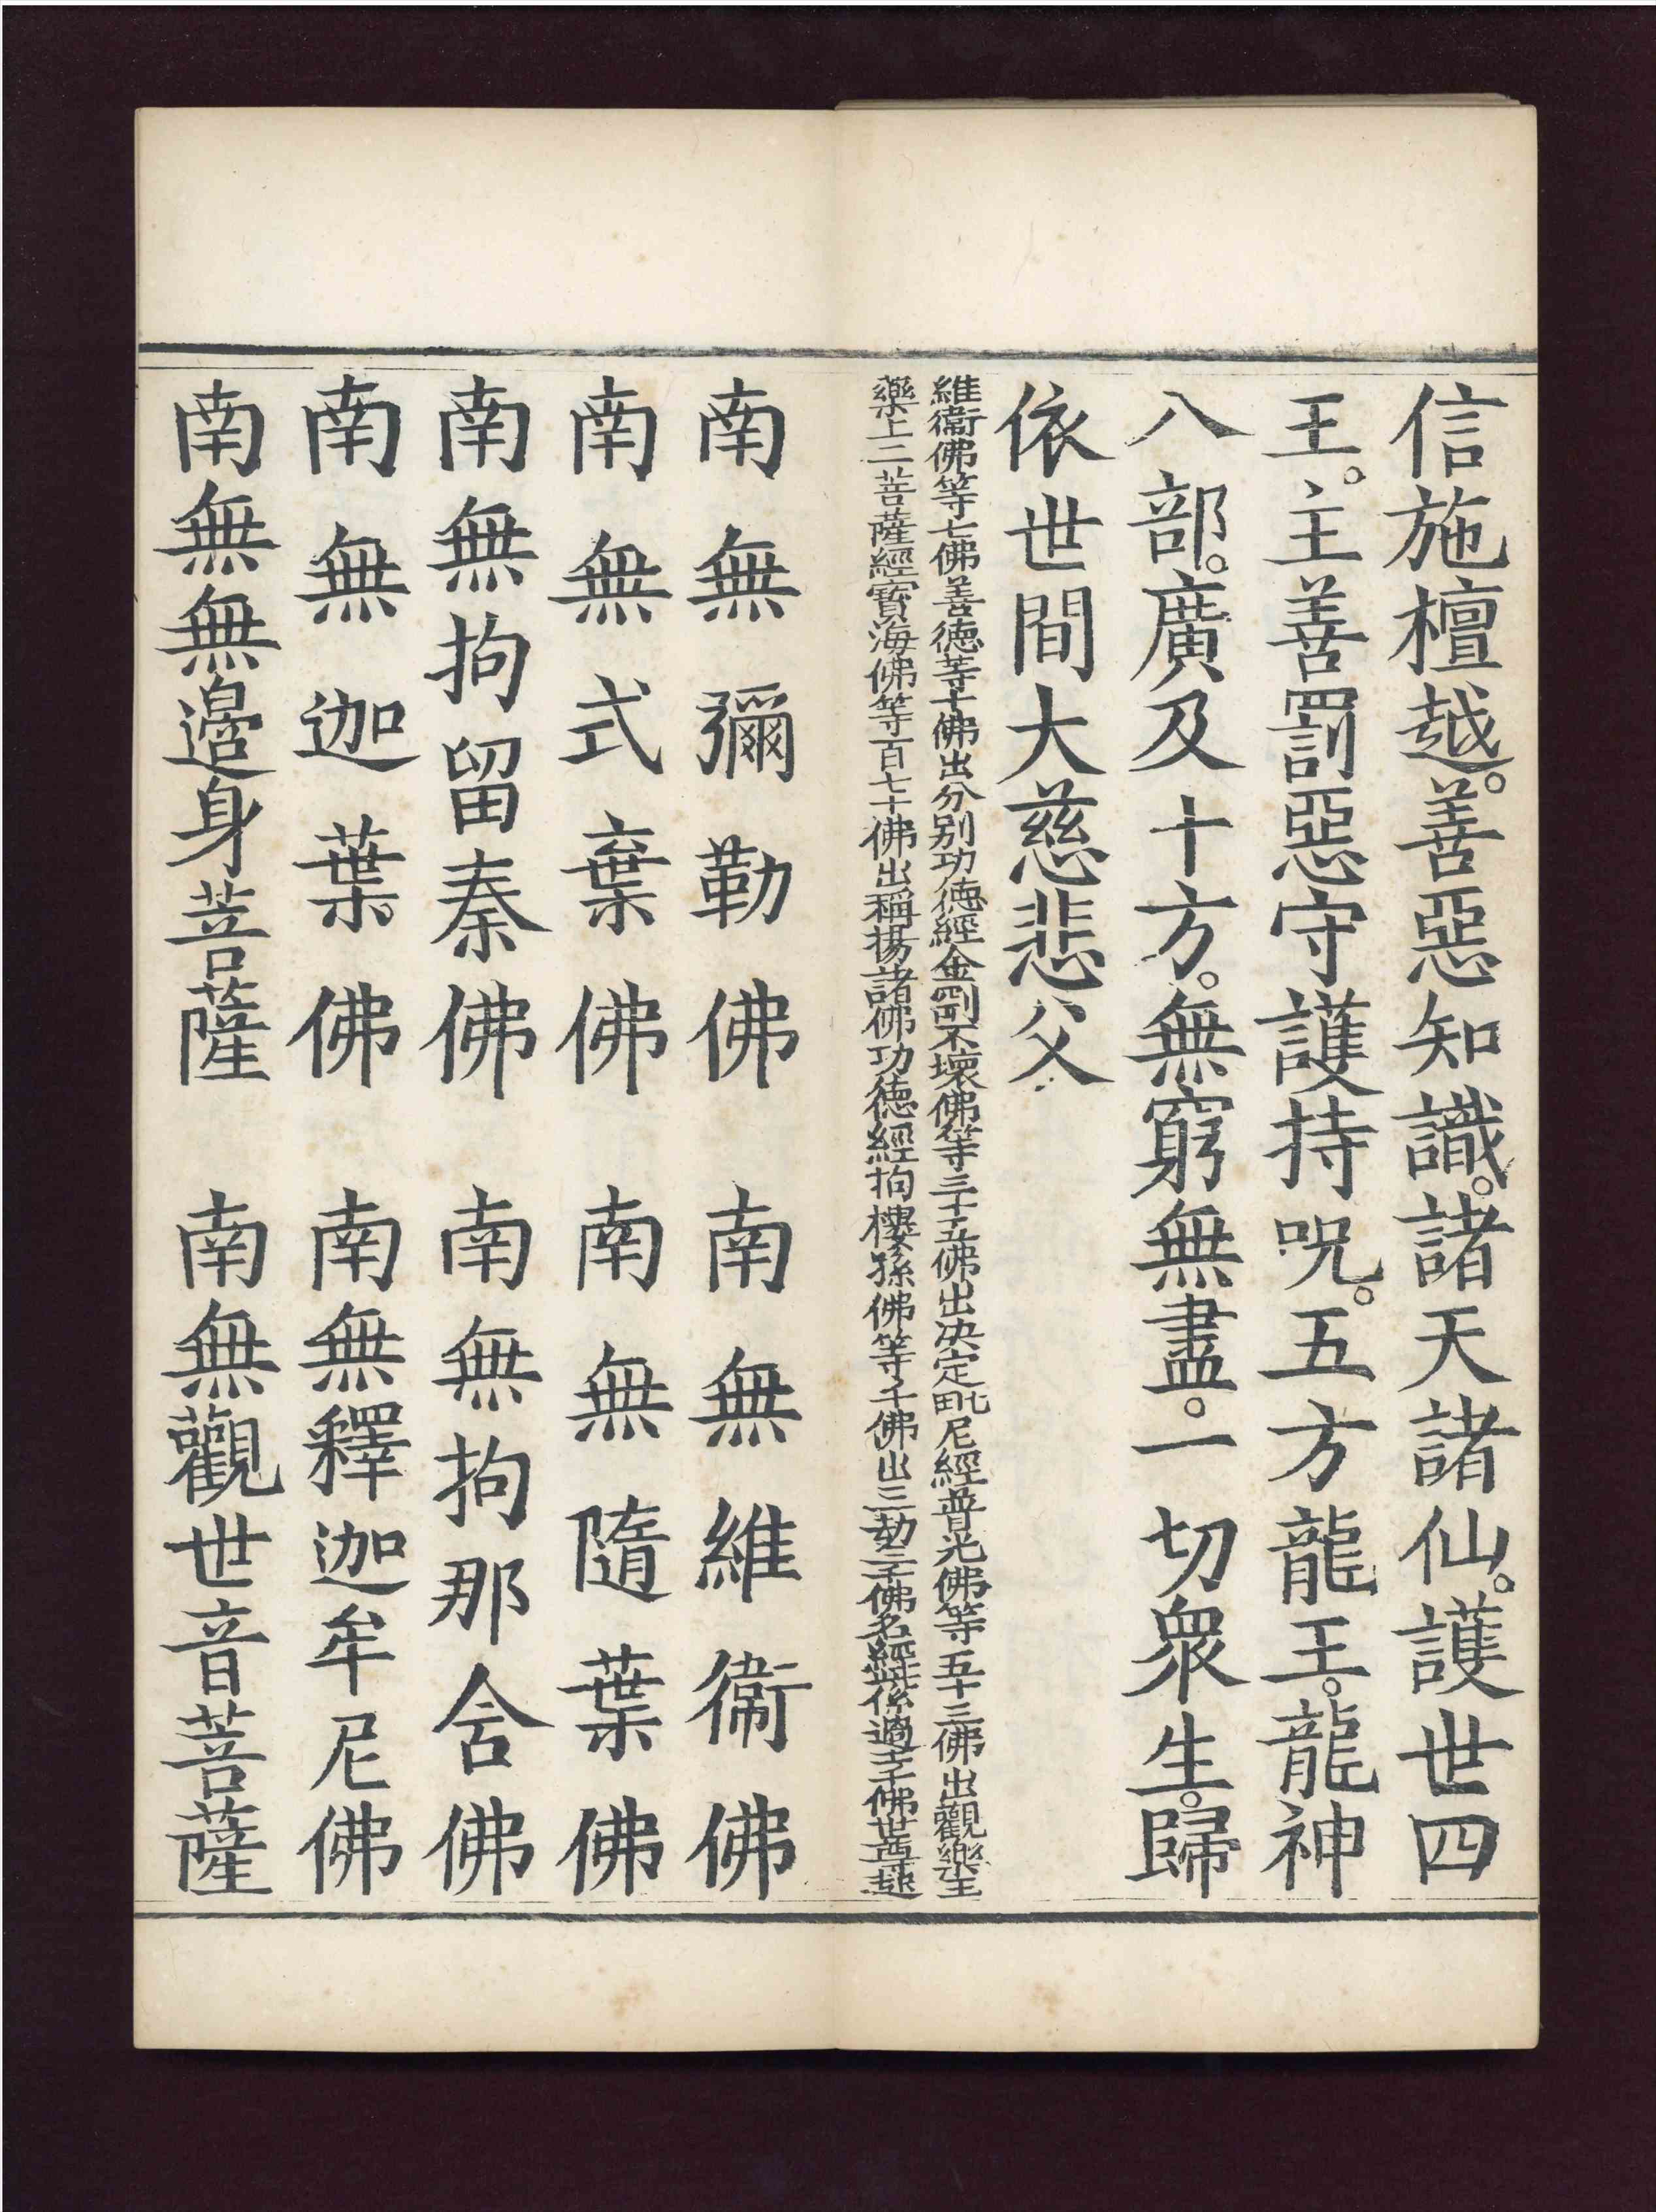 信施檀越。善惡知識。諸天諸仙。護世四
王。主善罰惡守護持呪。五方龍王。龍神
八部。廣及十方。無窮無盡。一切眾生。歸
依世間大慈悲父
維衞佛等七佛善德等十佛出分別功德經金剛不壞佛等三十五佛出決定毗尼經普光佛等五十三佛出觀樂王
藥上二菩薩經寶海佛等百七十佛出稱揚諸佛功德經拘樓孫佛等千佛出三劫三千佛名經
南無彌勒佛 南無維衞佛
南無式棄佛 南無隨葉佛
南無拘留秦佛 南無拘那含佛
南無迦葉佛 南無釋迦牟尼佛
南無無邊身菩薩 南無觀世音菩薩